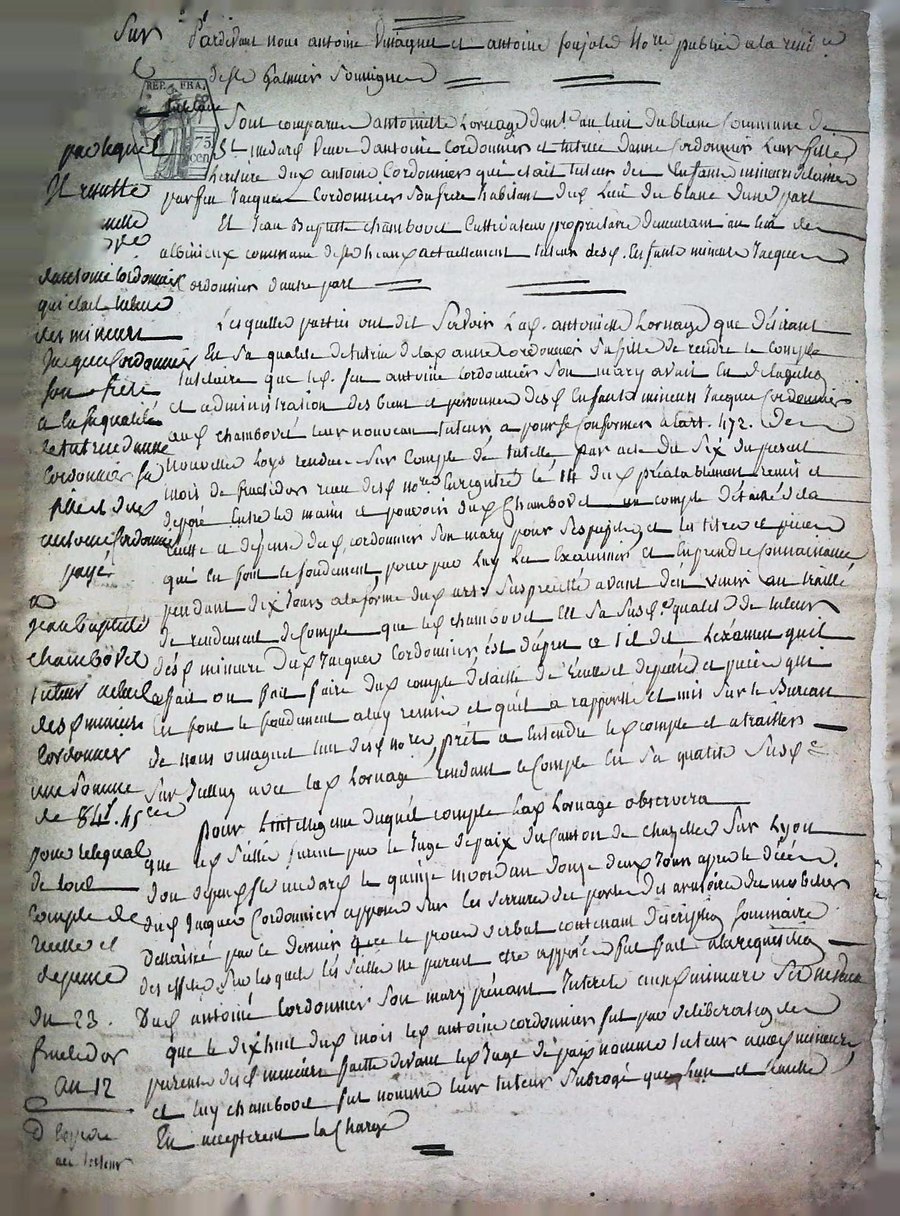 Sur
Pardevant nous antoine Omaguet et antoine soujols Nore public a la resid ce
de st Galmier Soussignes
REP. FRA.
75
cen
Sont comparus antoinette Lornage demt au lieu du blanc Commune de
St medard Veuve d'antoine Cordonnier et tutrice d'anne Cordonnier Leur fille
heritiere dud antoine Cordonnier qui etait tuteur des Enfants mineurs delaissés
par feu Jacques Cordonnier Son frere habitant dud Lieu du blanc d'une part
Et Jean Baptiste chambovet Cultivateur proprietaire demeurant au lieu de
albinieux commune de actuellement tuteur desd. Enfants mineurs Jacques
Cordonnier d'autre part
Lesquelles parties ont dit Savoir Lad. antoinette Lornage que desirant
En Sa qualité de tutrice de lad anne Cordonnier Sa fille de rendre le Compte
tutelaire que led. feu antoine Cordonnier Son mary avait En
et administration des biens et personnes desd Enfants mineurs Jacques Cordonnier
aud chambovet leur nouveau tuteur a pour se Conformer a l'art. 472. de
nouvelles Loys rendues Sur Compte de tutelle par acte du Six du present
mois de fructidor recu desd nores Enregistré le 14 dud préalablement remis et
deposé Entre les mains et pouvoir dud Chambovet un compte détaillé de la
recette et depense dud. cordonnier Son mary pour Ses pupiles et les titres et pieces
qui En font le fondement, pour par luy Les Examiner et En prendre Connaissance
pendant dix Jours a la forme dud art. Susprecité avant d'en venir au traillé
de rendement de Compte que led chambovet En Sa Susd. qualité de tuteur
desd mineurs dud Jacques Cordonnier est dapres ce 1 il dit L'examen quil
a fait ou fait faire dud compte détaillé de recette et depense et pieces qui
En font le fondement a luy remis et quil a rapporté et mis Sur le Bureau
de nous omaguet lun desd nores, prêt a Entendre led compte et a traitter
Sur Icelluy avec lad Lornage rendant le Compte En Sa qualité Susd e
pour L'intelligence duquel compte Lad Lornage observera
que les Scellés furent par le Juge de paix du Canton de chazelles Sur Lyon
medard le quinze an douze deux Jours apres le décès
dud Jacques Cordonnier apposés Sur les Serrures des portes des armoires du mobilier
Delaissé par ce dernier que le proces verbal contenant description Sommaire
des effets Sur lesquels les Scellés ne purent etre apposés fut fait a la requisition
Dud antoine Cordonnier Son mary prenant Interet auxd mineurs
que le dix huit dud mois led antoine cordonnier fut par deliberation des
parents desd mineurs faitte devant led Juge de paix nommé tuteur auxd mineurs
et luy chambovet fut nommé leur tuteur Subrogé que L'un et L'autre
En accepterent la Charge
par lequel
Il resulte
d'antoine Cordonnier
qui etait tuteur
des mineurs
Jacques Cordonnier
Son frere
a la Sa qualité
de tutrice d'anne
Cordonnier Sa
fille et dud
antoine Cordonnier
payé
a
Jean Baptiste
chambovet
tuteur actuel
desd mineurs
Cordonnier
une Somme
de 84 45
pour le
de tout
Compte de
recette et
depense
du 23.
fructidor
an 12